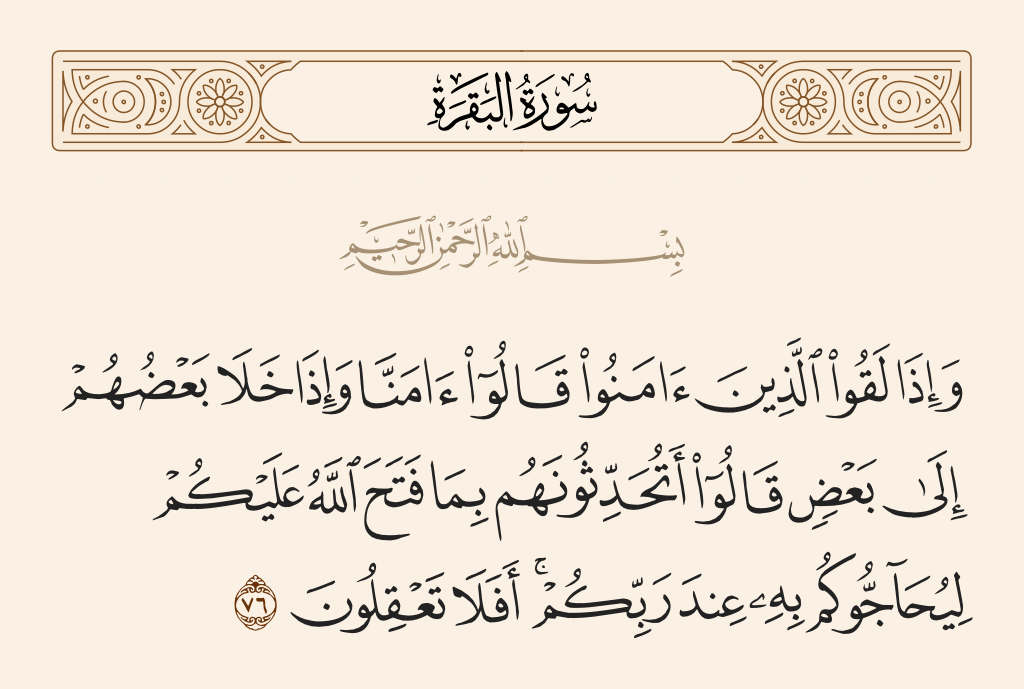 سُورَةُ البَقَرَةِ
بِسْمِ ٱللَّهِ ٱلرَّحْمَٰنِ ٱلرَّحِيمِ
وَإِذَا لَقُوا۟ ٱلَّذِينَ ءَامَنُوا۟ قَالُوٓا۟ ءَامَنَّا وَإِذَا خَلَا بَعْضُهُمْ
إِلَىٰ بَعْضٍ قَالُوٓا۟ أَتُحَدِّثُونَهُم بِمَا فَتَحَ ٱللَّهُ عَلَيْكُمْ
لِيُحَآجُّوكُم بِهِۦ عِندَ رَبِّكُمْ ۚ أَفَلَا تَعْقِلُونَ ٧٦